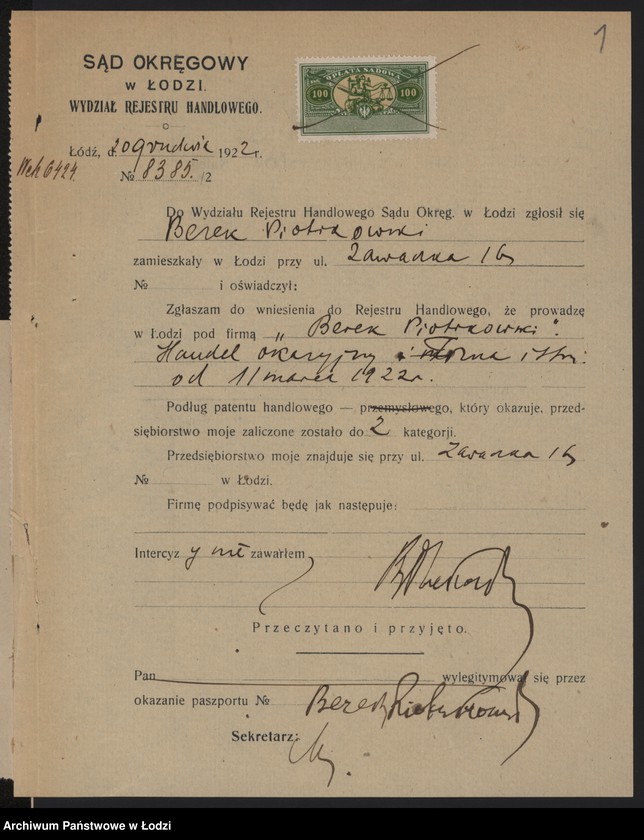 1
SĄD OKRĘGOWY
w ŁODZI.
WYDZIAŁ REJESTRU HANDLOWEGO.
OPŁATA SĄDOWA
100 100
Łódź, d. 20 grudnia 1922 r.
№ 8385/2
Do Wydziału Rejestru Handlowego Sądu Okręg. w Łodzi zgłosił się
Berek Piotrkowski
zamieszkały w Łodzi przy ul. Zawadzka 16
№ i oświadczył:
Zgłaszam do wniesienia do Rejestru Handlowego, że prowadzę
w Łodzi pod firmą „Berek Piotrkowski".
Handel okazyjny i
od 11 marca 1922 r.
Podług patentu handlowego — przemysłowego, który okazuje, przed-
siębiorstwo moje zaliczone zostało do 2 kategorji.
Przedsiębiorstwo moje znajduje się przy ul. Zawadzka 16
№ w Łodzi.
Firmę podpisywać będę jak następuje:
Intercyzy nie zawarłem
Przeczytano i przyjęto.
Pan wylegitymował się przez
okazanie paszportu № Berek Piotrkowski
Sekretarz:
Archiwum Państwowe w Łodzi